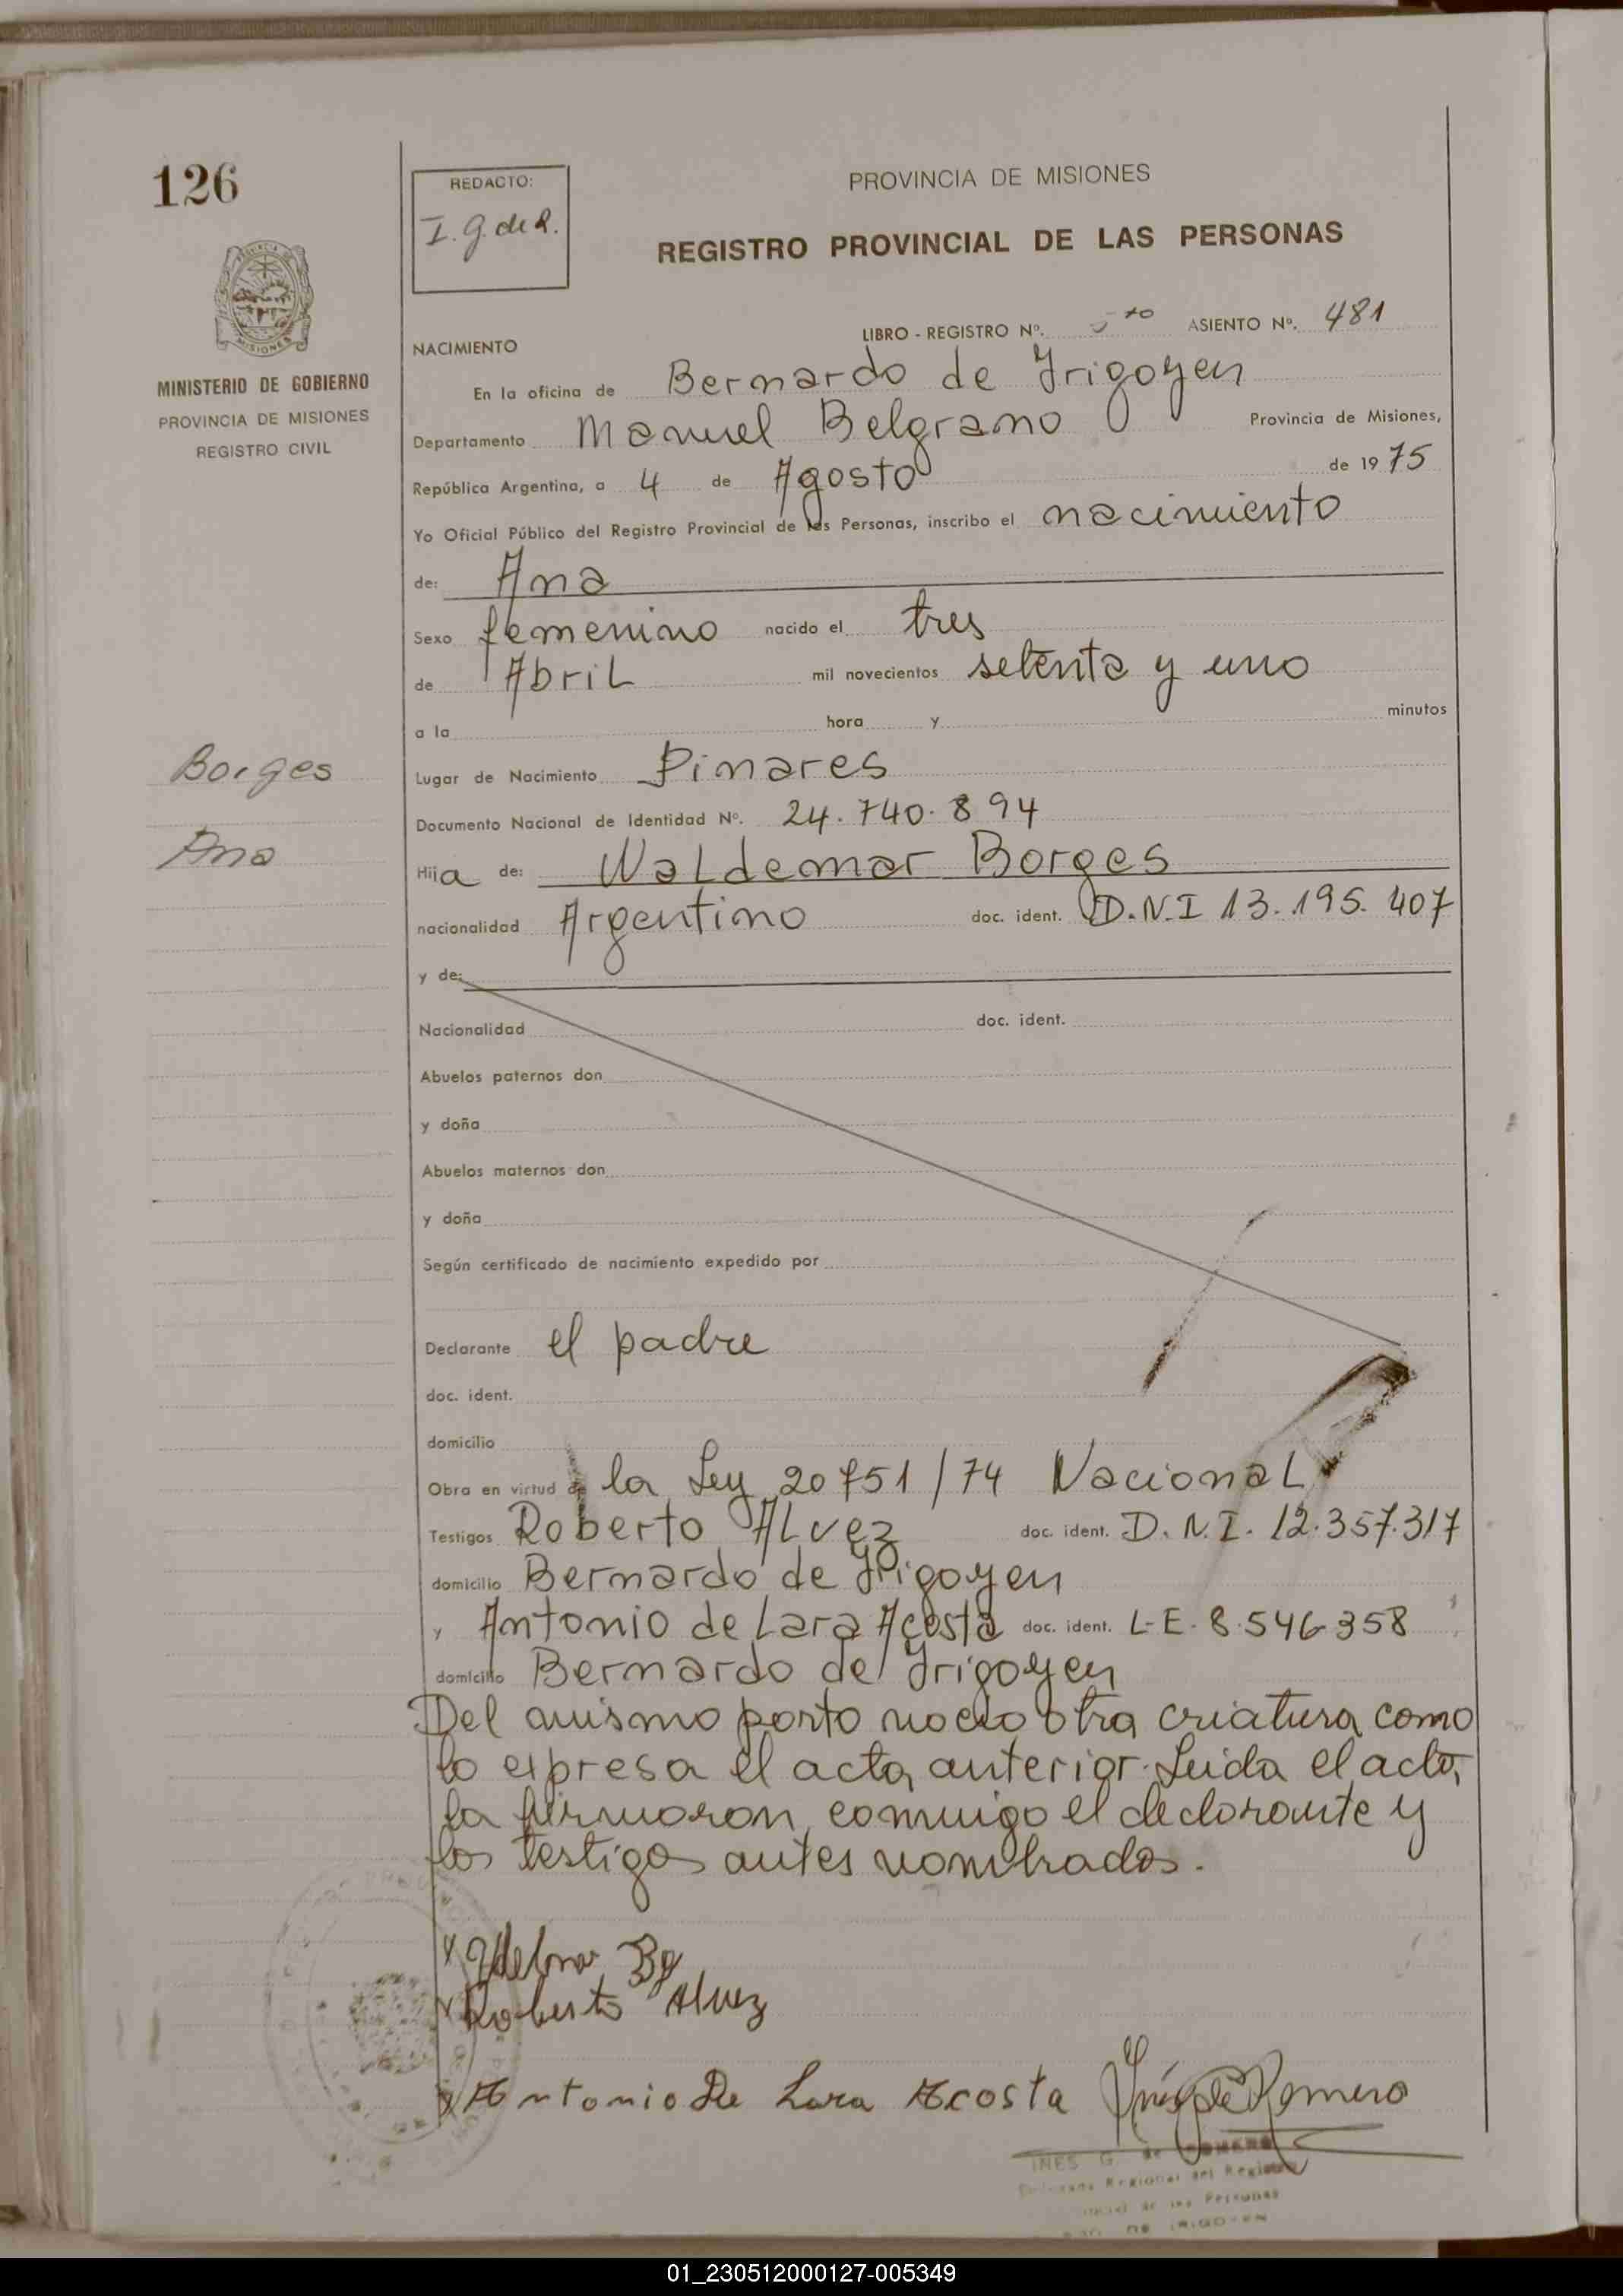 126
REDACTO:
I. G. de R.
PROVINCIA DE MISIONES
REGISTRO PROVINCIAL DE LAS PERSONAS
MINISTERIO DE GOBIERNO
PROVINCIA DE MISIONES
REGISTRO CIVIL
LIBRO - REGISTRO Nº. 5to ASIENTO Nº. 481
NACIMIENTO
En la oficina de Bernardo de Irigoyen
Departamento Manuel Belgrano Provincia de Misiones,
República Argentina, a 4 de Agosto de 1975
Yo Oficial Público del Registro Provincial de las Personas, inscribo el nacimiento
de: Ana
Sexo femenino nacido el tres
de Abril mil novecientos setenta y uno
a la hora y minutos
Borges
Lugar de Nacimiento Pinares
Documento Nacional de Identidad Nº. 24.740.894
Ana
Hija de: Waldemar Borges
nacionalidad Argentino doc. ident. D.N.I 13.195.407
y de:
Nacionalidad doc. ident.
Abuelos paternos don
y doña
Abuelos maternos don
y doña
Según certificado de nacimiento expedido por
Declarante el padre
doc. ident.
domicilio
Obra en virtud de la Ley 20751/74 Nacional
Testigos Roberto Alvez doc. ident. D.N.I. 12.357.317
domicilio Bernardo de Irigoyen
y Antonio de Lara Acosta doc. ident. L-E-8.546.358
domicilio Bernardo de Irigoyen
Del mismo parto nació otra criatura como
lo expresa el acta anterior. Leida el acta,
la firmaron conmigo el declarante y
los testigos antes nombrados.
Roberto Alvez
Antonio De Lara Acosta Inés G de Romero
INES G. de ROMERO
Regional del Registro
de las Personas
DE IRIGOYEN
01_230512000127-005349